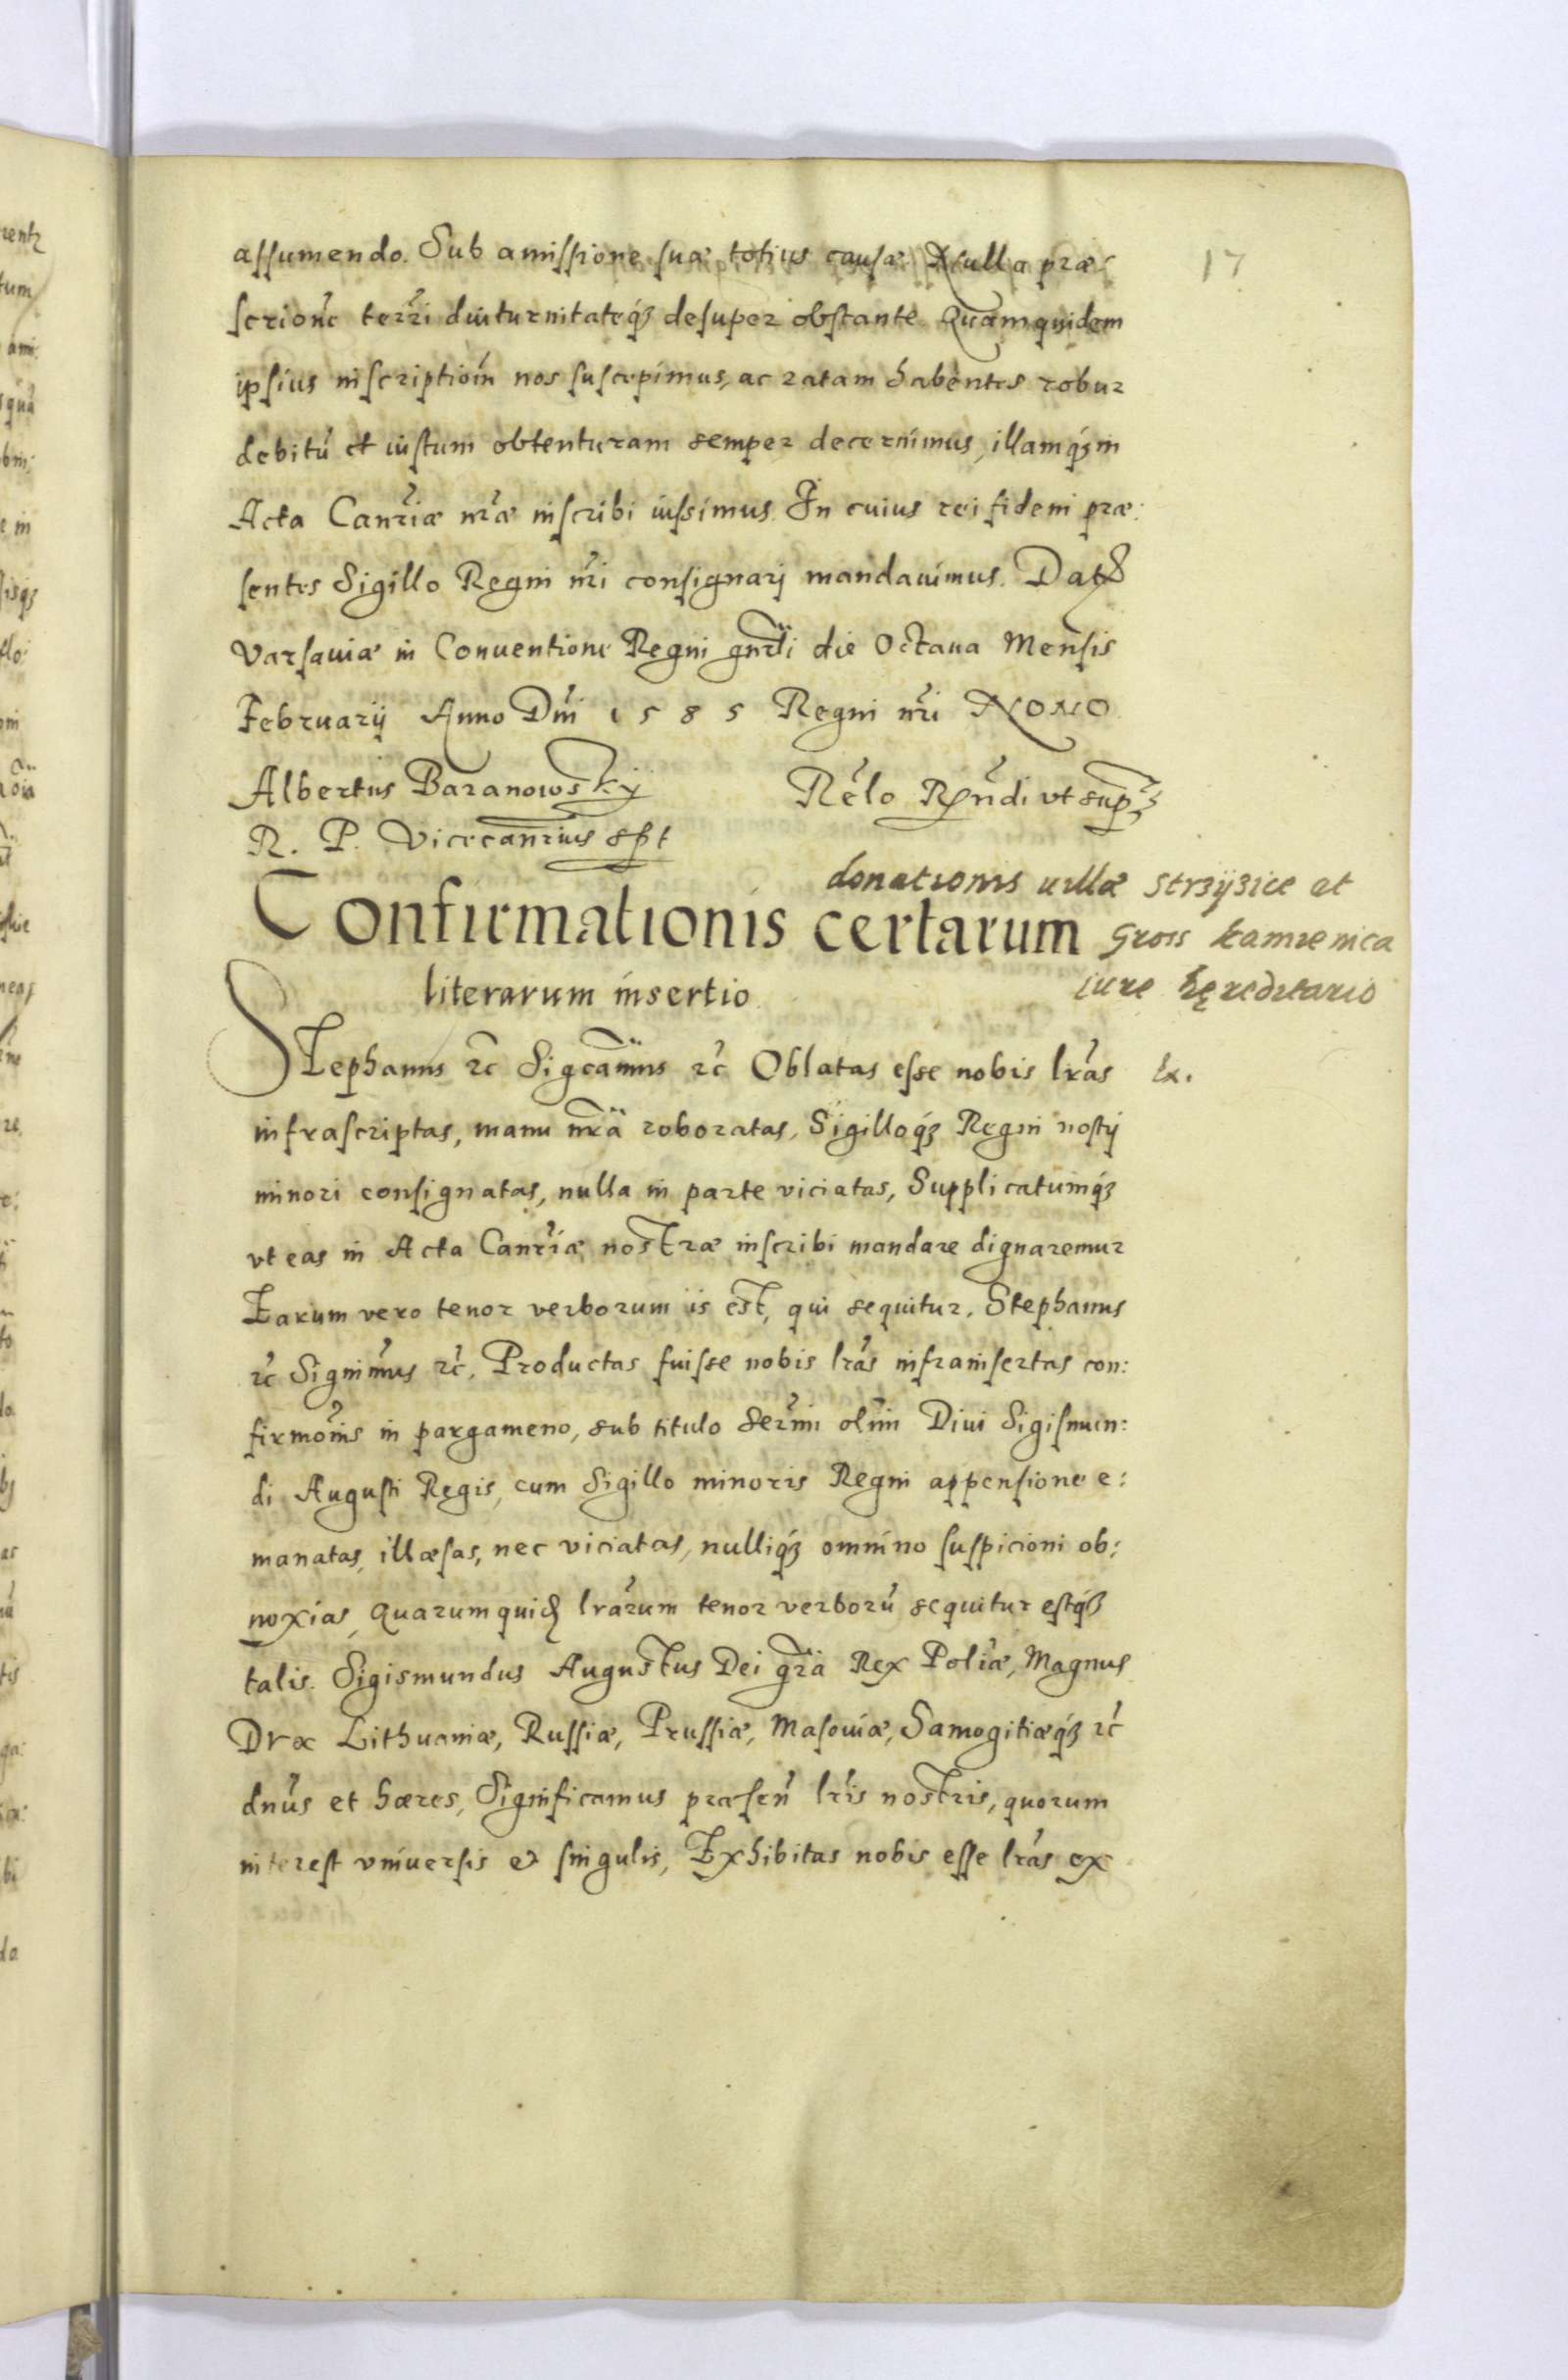 assumendo. Sub amissione suæ totius causæ Nulla præ:
scrione terri diuturnitateq3 desuper obstante Quamquidem
ipsius inscriptioin nos suscepimus, ac ratam habentes robur
debitu et iustum obtenturam semper decernimus, illamq3 in
Acta Canriæ nræ inscribi iussimus. In cuius rei fidem præ:
sentes Sigillo Regni nri consignarj mandauimus. Dat
Varsauiæ in Conuentione Regni gnrli die Octaua Mensis
Februarij Anno Dni 1585 Regni nri NONO
Albertus Baranowskj
R. P. Vicecanrius sst
Relo Rndi vt supr
donationis uillæ Strzÿzice et
Confirmationis certarum
Grois kamienica
literarum insertio
iure hęreditario
17
Stephanus &c Sigcamus &c Oblatas esse nobis lras
Ex.
infrascriptas, manu nra roboratas, Sigilloq3 Regni nostrj
minori consignatas, nulla in parte viciatas, Supplicatumq3
vt eas in Acta Canriæ nostræ inscribi mandare dignaremur
Earum vero tenor verborum is est, qui sequitur. Stephanus
&c Signimus &c. Productas fuisse nobis lras infrainsertas con:
firmonis in pargameno, sub titulo Sermi olim Diui Sigismun:
di Augusti Regis, cum Sigillo minoris Regni appensione e:
manatas, illæsas, nec viciatas, nulliq3 omnino suspicioni ob:
noxias, Quarumquid lrarum tenor verboru sequitur estq3
talis. Sigismundus Augustus Dei gra Rex Poliæ, Magnus
Dvx Lithuaniæ, Russiæ, Prussiæ, Masouiæ, Samogitiæq3 &c
dnus et hæres, Significamus præsen lris nostris, quorum
interest vniuersis et singulis, Exhibitas nobis esse lras ex